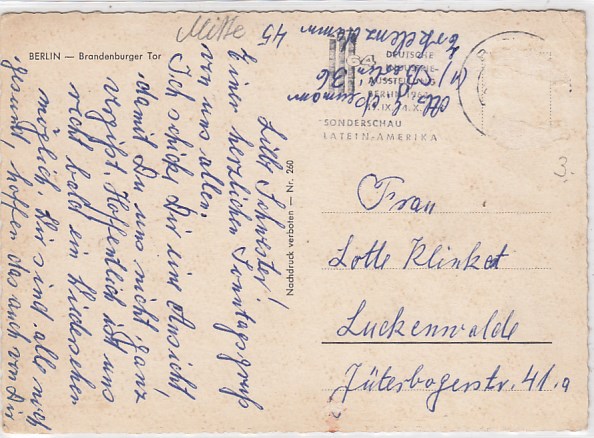 Mitte
BERLIN — Brandenburger Tor
Liebe Schwester!
Einen herzlichen Sonntagsgruß
von uns allen.
Ich schicke Dir eine Ansicht,
damit Du uns nicht ganz
vergißt. Hoffentlich ist uns
recht bald ein Wiedersehen
möglich. Wir sind alle noch
gesund, hoffen das auch von Dir
Nachdruck verboten — Nr. 260
45
DEUTSCHE
INDUSTRIE-
AUSSTELLUNG
BERLIN
SONDERSCHAU
LATEIN-AMERIKA
Frau
Lotte Klinkat
Luckenwalde
Jüterbogerstr. 41.a
3.